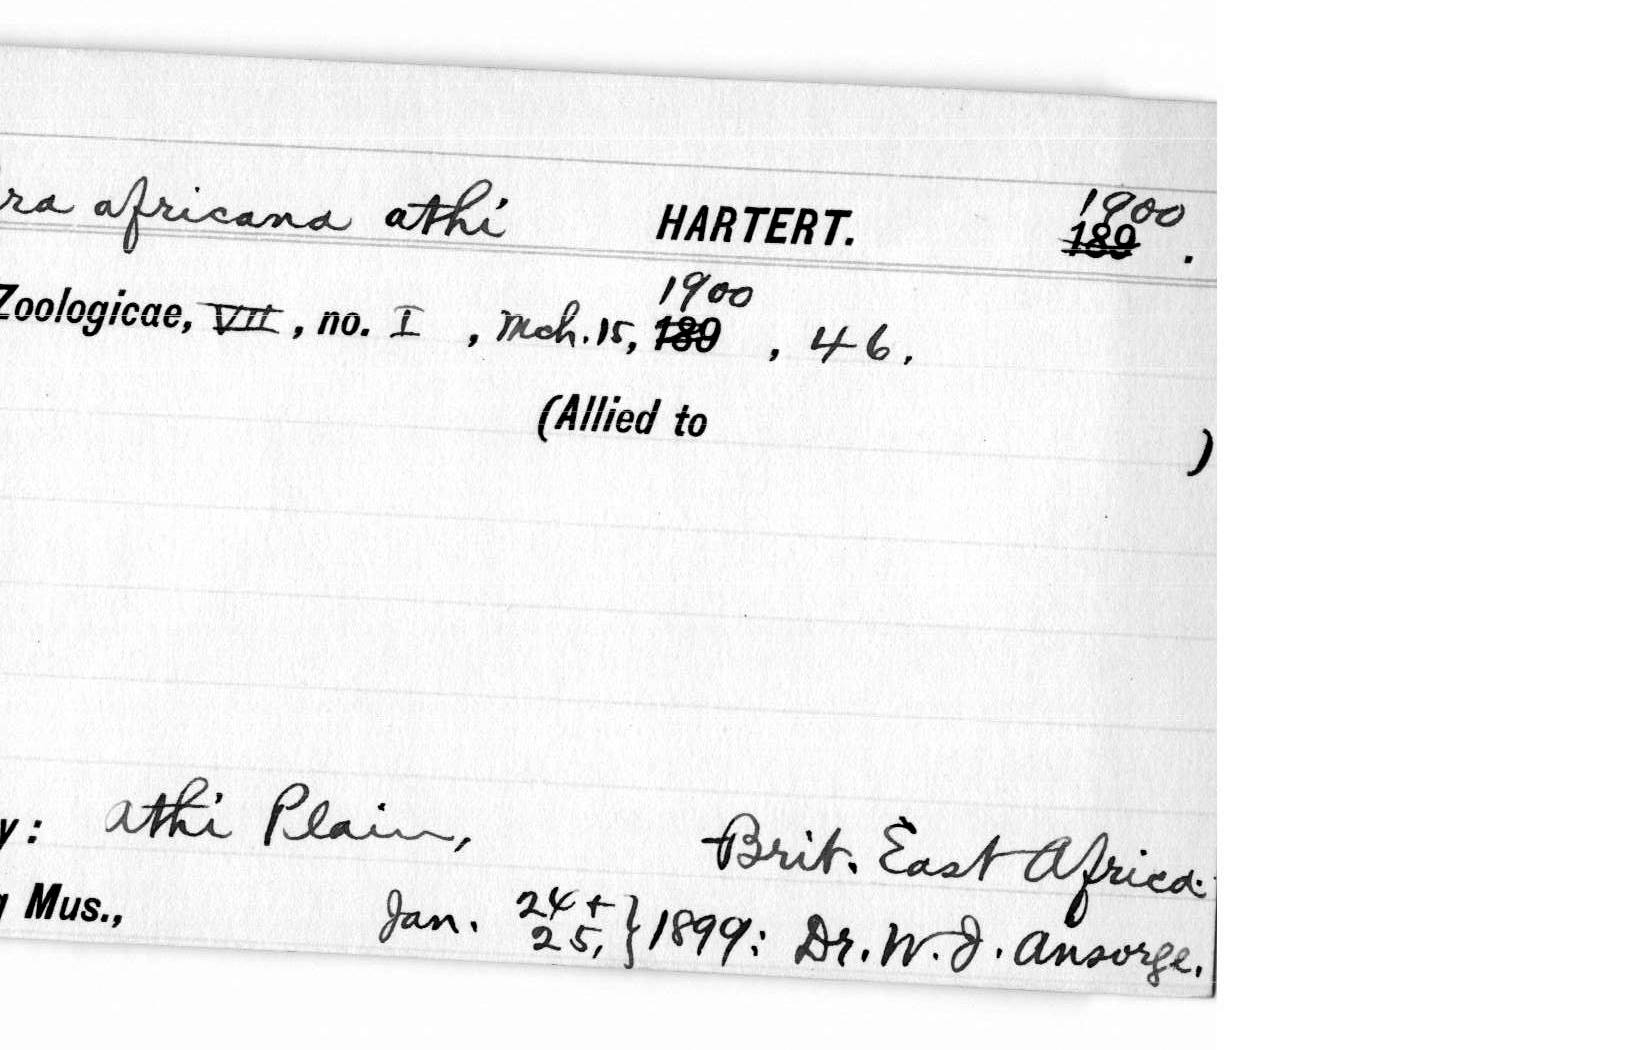 ra africana athi HARTERT. 1900 189 .
Zoologicae, VII, no. I , Mch. 15, 1900 189 , 46.
(Allied to )
y: Athi Plain, Brit. East Africa.
g Mus., Jan. 24 + 25, } 1899: Dr. W. J. Ansorge.